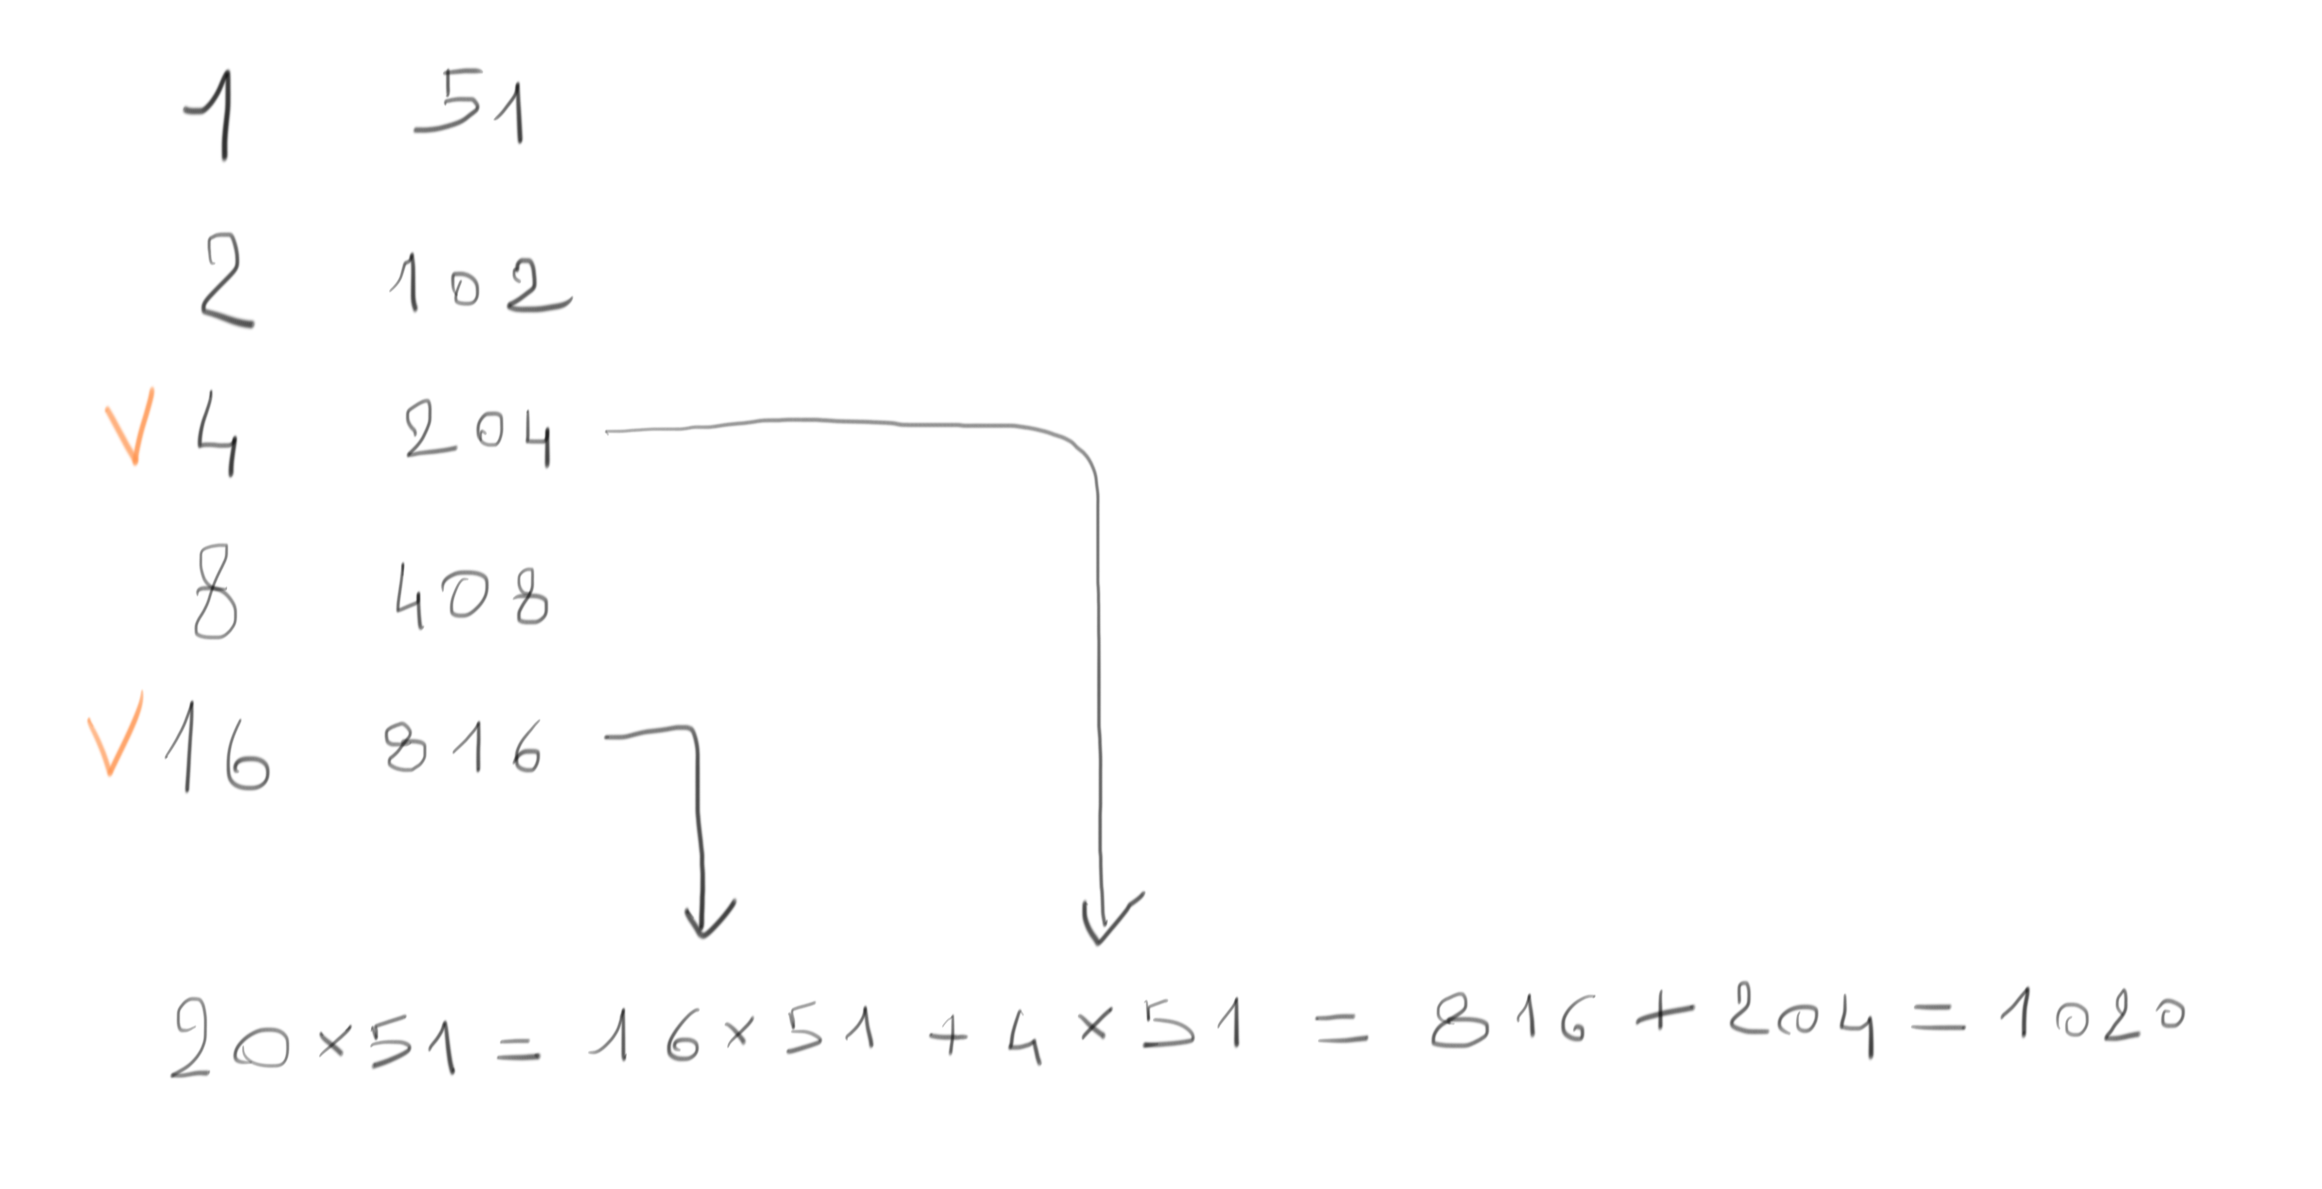 1 51
2 102
√ 4 204
8 408
√ 16 816
20×51=16×51+4×51=816+204=1020